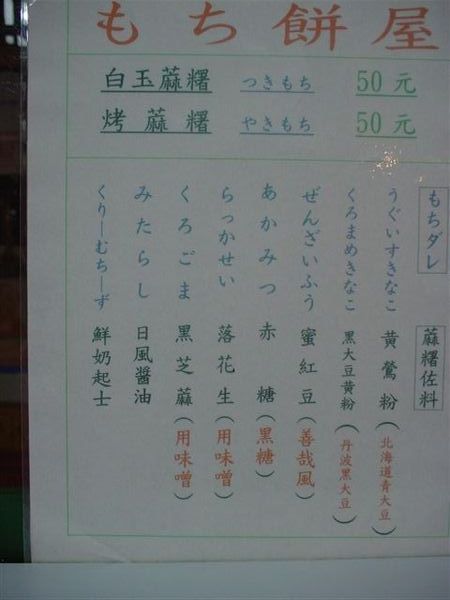 もち餅屋
白玉蔴糬 つきもち 50元
烤蔴糬 やきもち 50元
もちダレ 蔴糬佐料
うぐいすきなこ 黄鶯粉(北海道青大豆)
くろまめきなこ 黑大豆黄粉(丹波黑大豆)
ぜんざいふう 蜜紅豆(善哉風)
あかみつ 赤糖(黑糖)
らっかせい 落花生(用味噌)
くろごま 黑芝蔴(用味噌)
みたらし 日風醬油
くりーむちーず 鮮奶起士